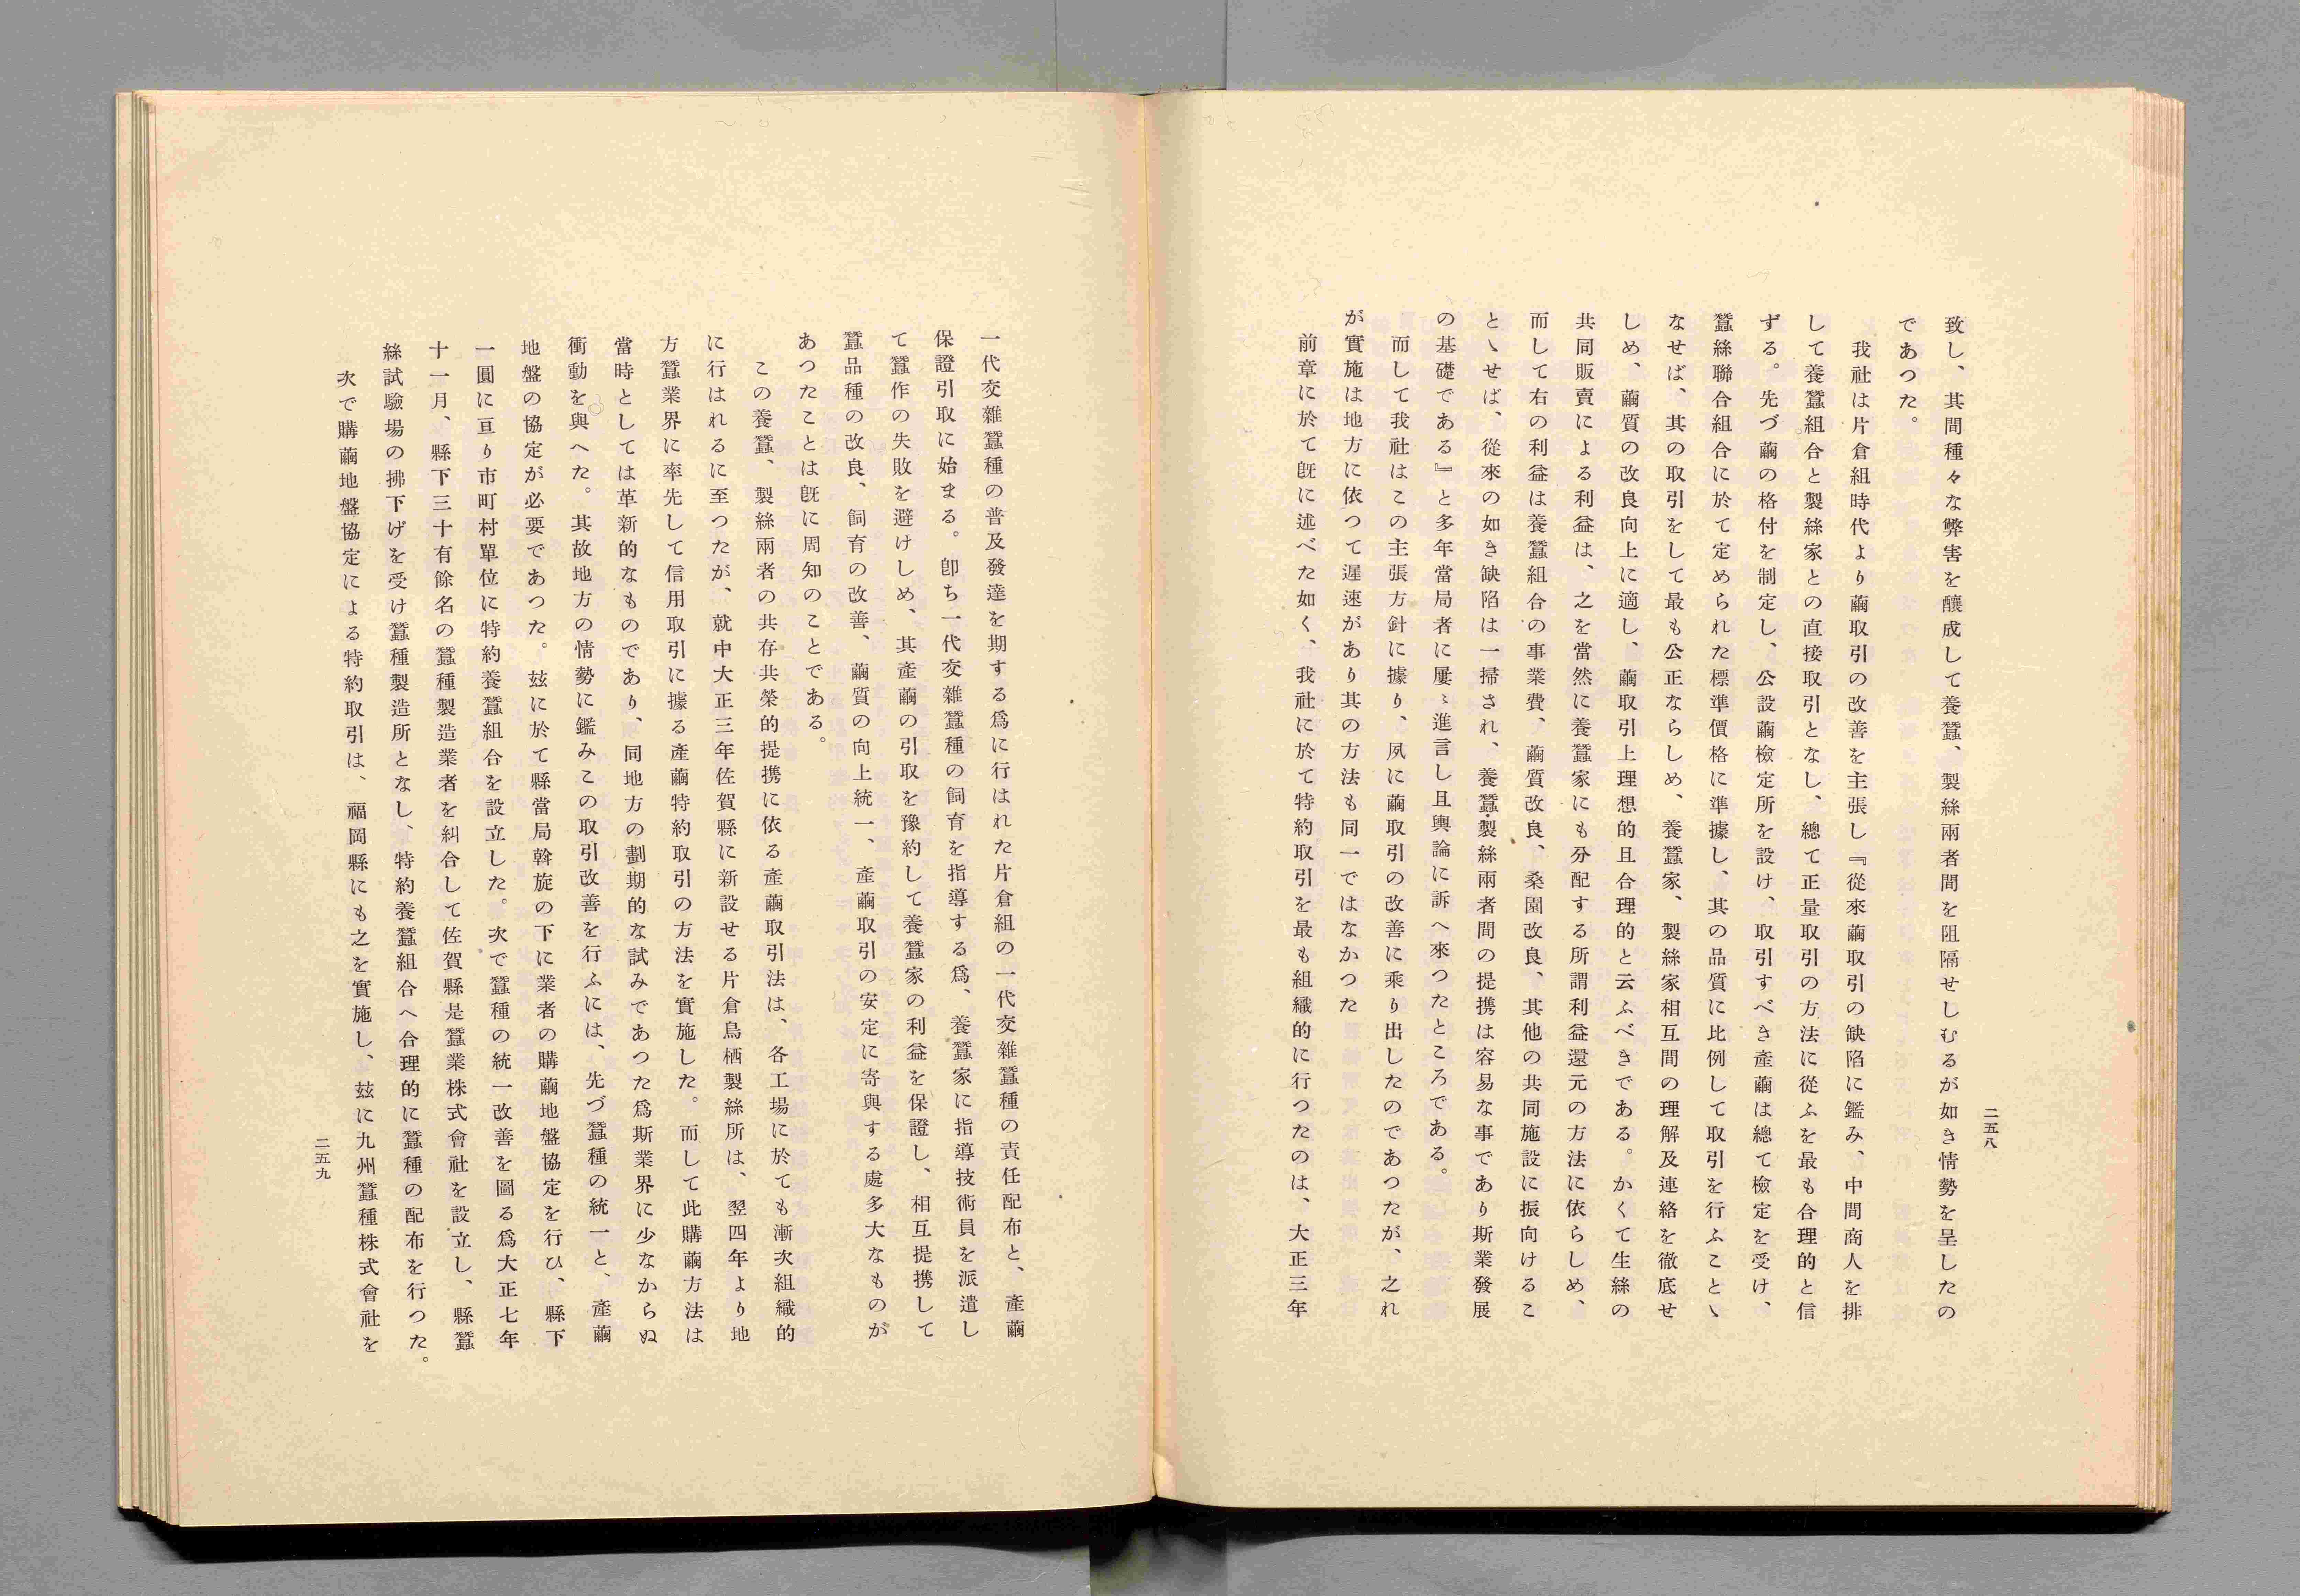 二五八
致し、其間種々な弊害を釀成して養蠶、製絲兩者間を阻隔せしむるが如き情勢を呈したの
であつた。
我社は片倉組時代より繭取引の改善を主張し『從來繭取引の缺陷に鑑み、中間商人を排
して養蠶組合と製絲家との直接取引となし、總て正量取引の方法に從ふを最も合理的と信
ずる。先づ繭の格付を制定し、公設繭檢定所を設け、取引すべき產繭は總て檢定を受け、
蠶絲聯合組合に於て定められた標準價格に準據し、其の品質に比例して取引を行ふことゝ
なせば、其の取引をして最も公正ならしめ、養蠶家、製絲家相互間の理解及連絡を徹底せ
しめ、繭質の改良向上に適し、繭取引上理想的且合理的と云ふべきである。かくて生絲の
共同販賣による利益は、之を當然に養蠶家にも分配する所謂利益還元の方法に依らしめ、
而して右の利益は養蠶組合の事業費、繭質改良、桑園改良、其他の共同施設に振向けるこ
とゝせば、從來の如き缺陷は一掃され、養蠶・製絲兩者間の提携は容易な事であり斯業發展
の基礎である』と多年當局者に屢〻進言し且輿論に訴へ來つたところである。
而して我社はこの主張方針に據り、夙に繭取引の改善に乘り出したのであつたが、之れ
が實施は地方に依つて遲速があり其の方法も同一ではなかつた
前章に於て旣に述べた如く、我社に於て特約取引を最も組織的に行つたのは、大正三年
一代交雜蠶種の普及發達を期する爲に行はれた片倉組の一代交雜蠶種の責任配布と、產繭
保證引取に始まる。卽ち一代交雜蠶種の飼育を指導する爲、養蠶家に指導技術員を派遣し
て蠶作の失敗を避けしめ、其產繭の引取を豫約して養蠶家の利益を保證し、相互提携して
蠶品種の改良、飼育の改善、繭質の向上統一、產繭取引の安定に寄與する處多大なものが
あつたことは旣に周知のことである。
この養蠶、製絲兩者の共存共榮的提携に依る產繭取引法は、各工場に於ても漸次組織的
に行はれるに至つたが、就中大正三年佐賀縣に新設せる片倉鳥栖製絲所は、翌四年より地
方蠶業界に率先して信用取引に據る產繭特約取引の方法を實施した。而して此購繭方法は
當時としては革新的なものであり、同地方の劃期的な試みであつた爲斯業界に少なからぬ
衝動を與へた。其故地方の情勢に鑑みこの取引改善を行ふには、先づ蠶種の統一と、產繭
地盤の協定が必要であつた。玆に於て縣當局斡旋の下に業者の購繭地盤協定を行ひ、縣下
一圓に亘り市町村單位に特約養蠶組合を設立した。次で蠶種の統一改善を圖る爲大正七年
十一月、縣下三十有餘名の蠶種製造業者を糾合して佐賀縣是蠶業株式會社を設立し、縣蠶
絲試驗場の拂下げを受け蠶種製造所となし、特約養蠶組合へ合理的に蠶種の配布を行つた。
次で購繭地盤協定による特約取引は、福岡縣にも之を實施し、玆に九州蠶種株式會社を
二五九